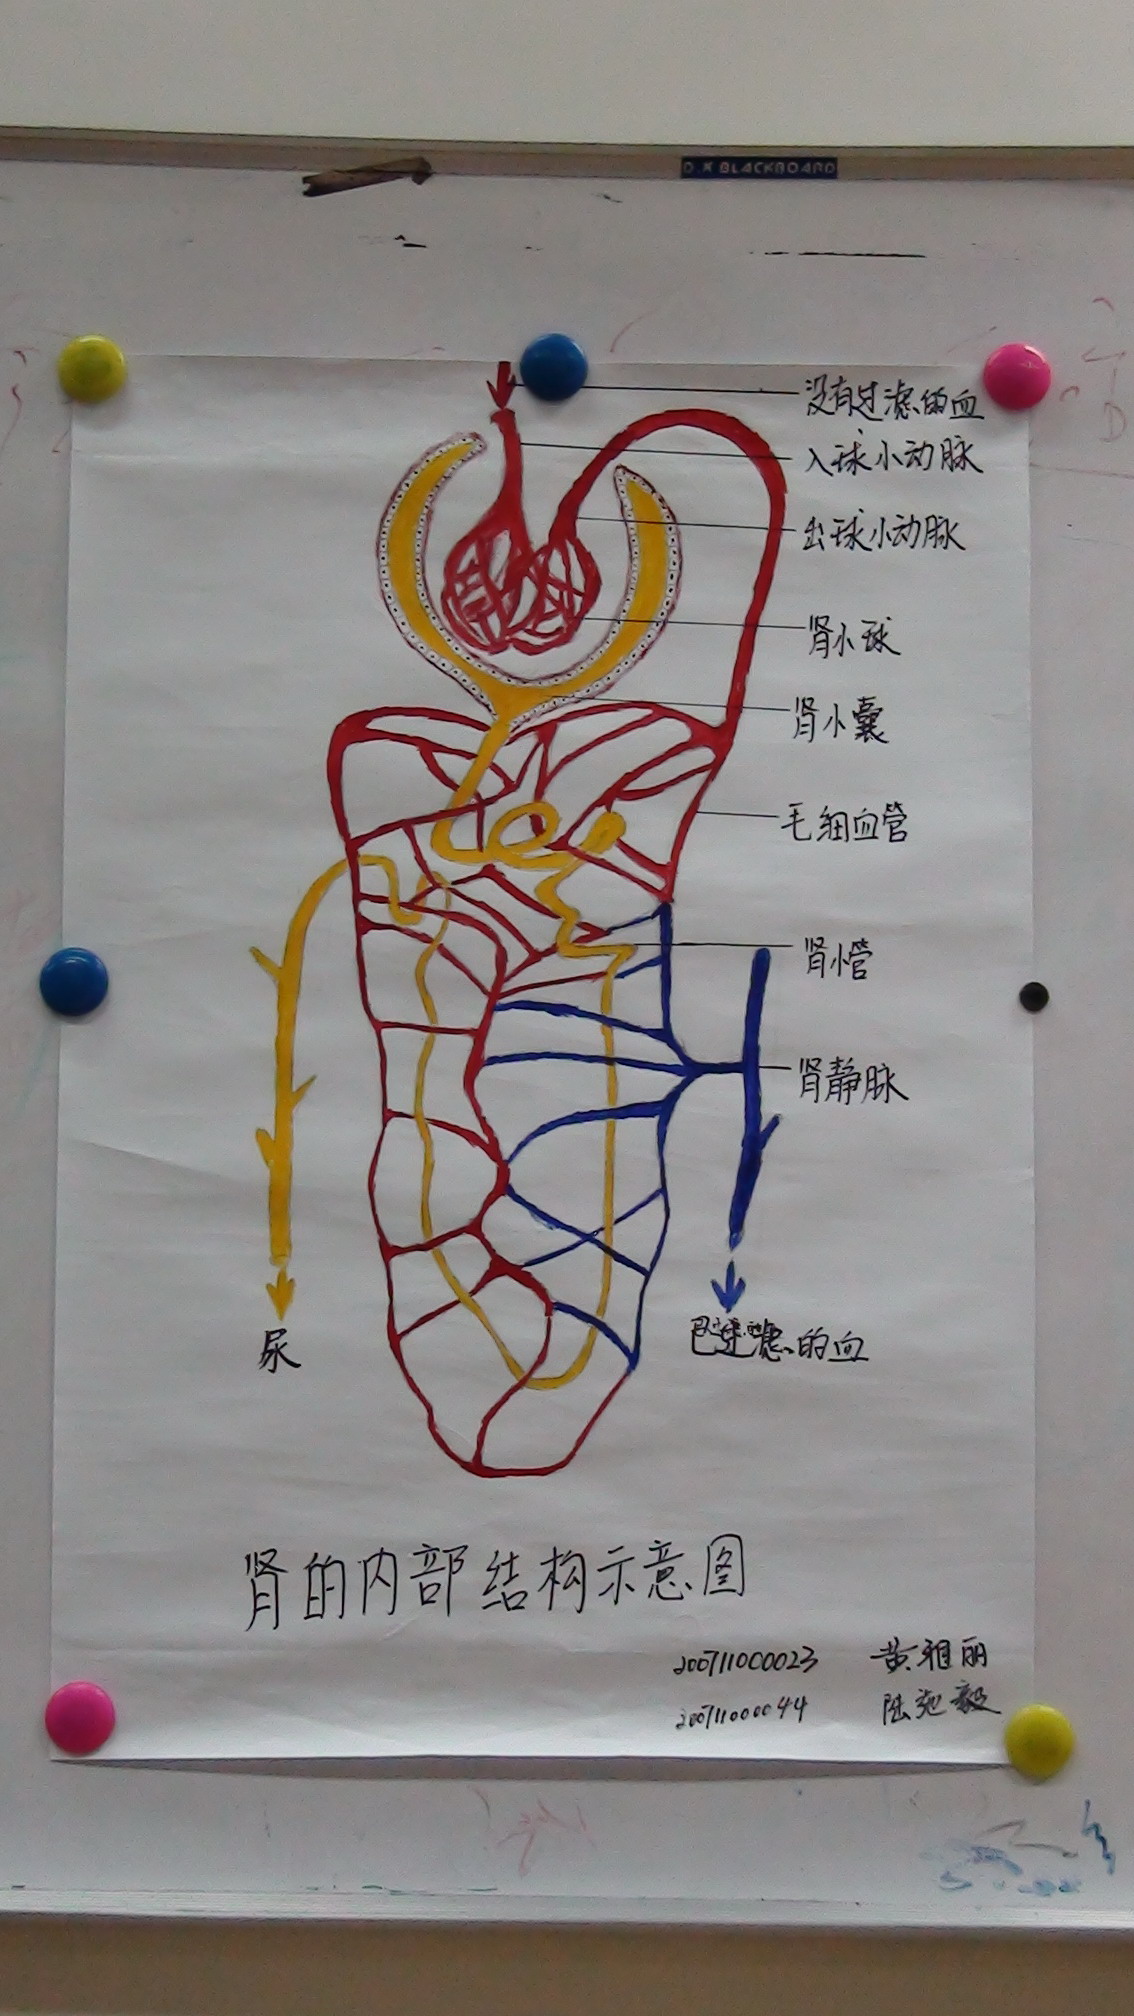 D.X BLACKBOARD
没有过滤的血
入球小动脉
出球小动脉
肾小球
肾小囊
毛细血管
肾小管
肾静脉
尿
已过滤的血
肾的内部结构示意图
200711000023 黄雅丽
200711000044 陆苑毅